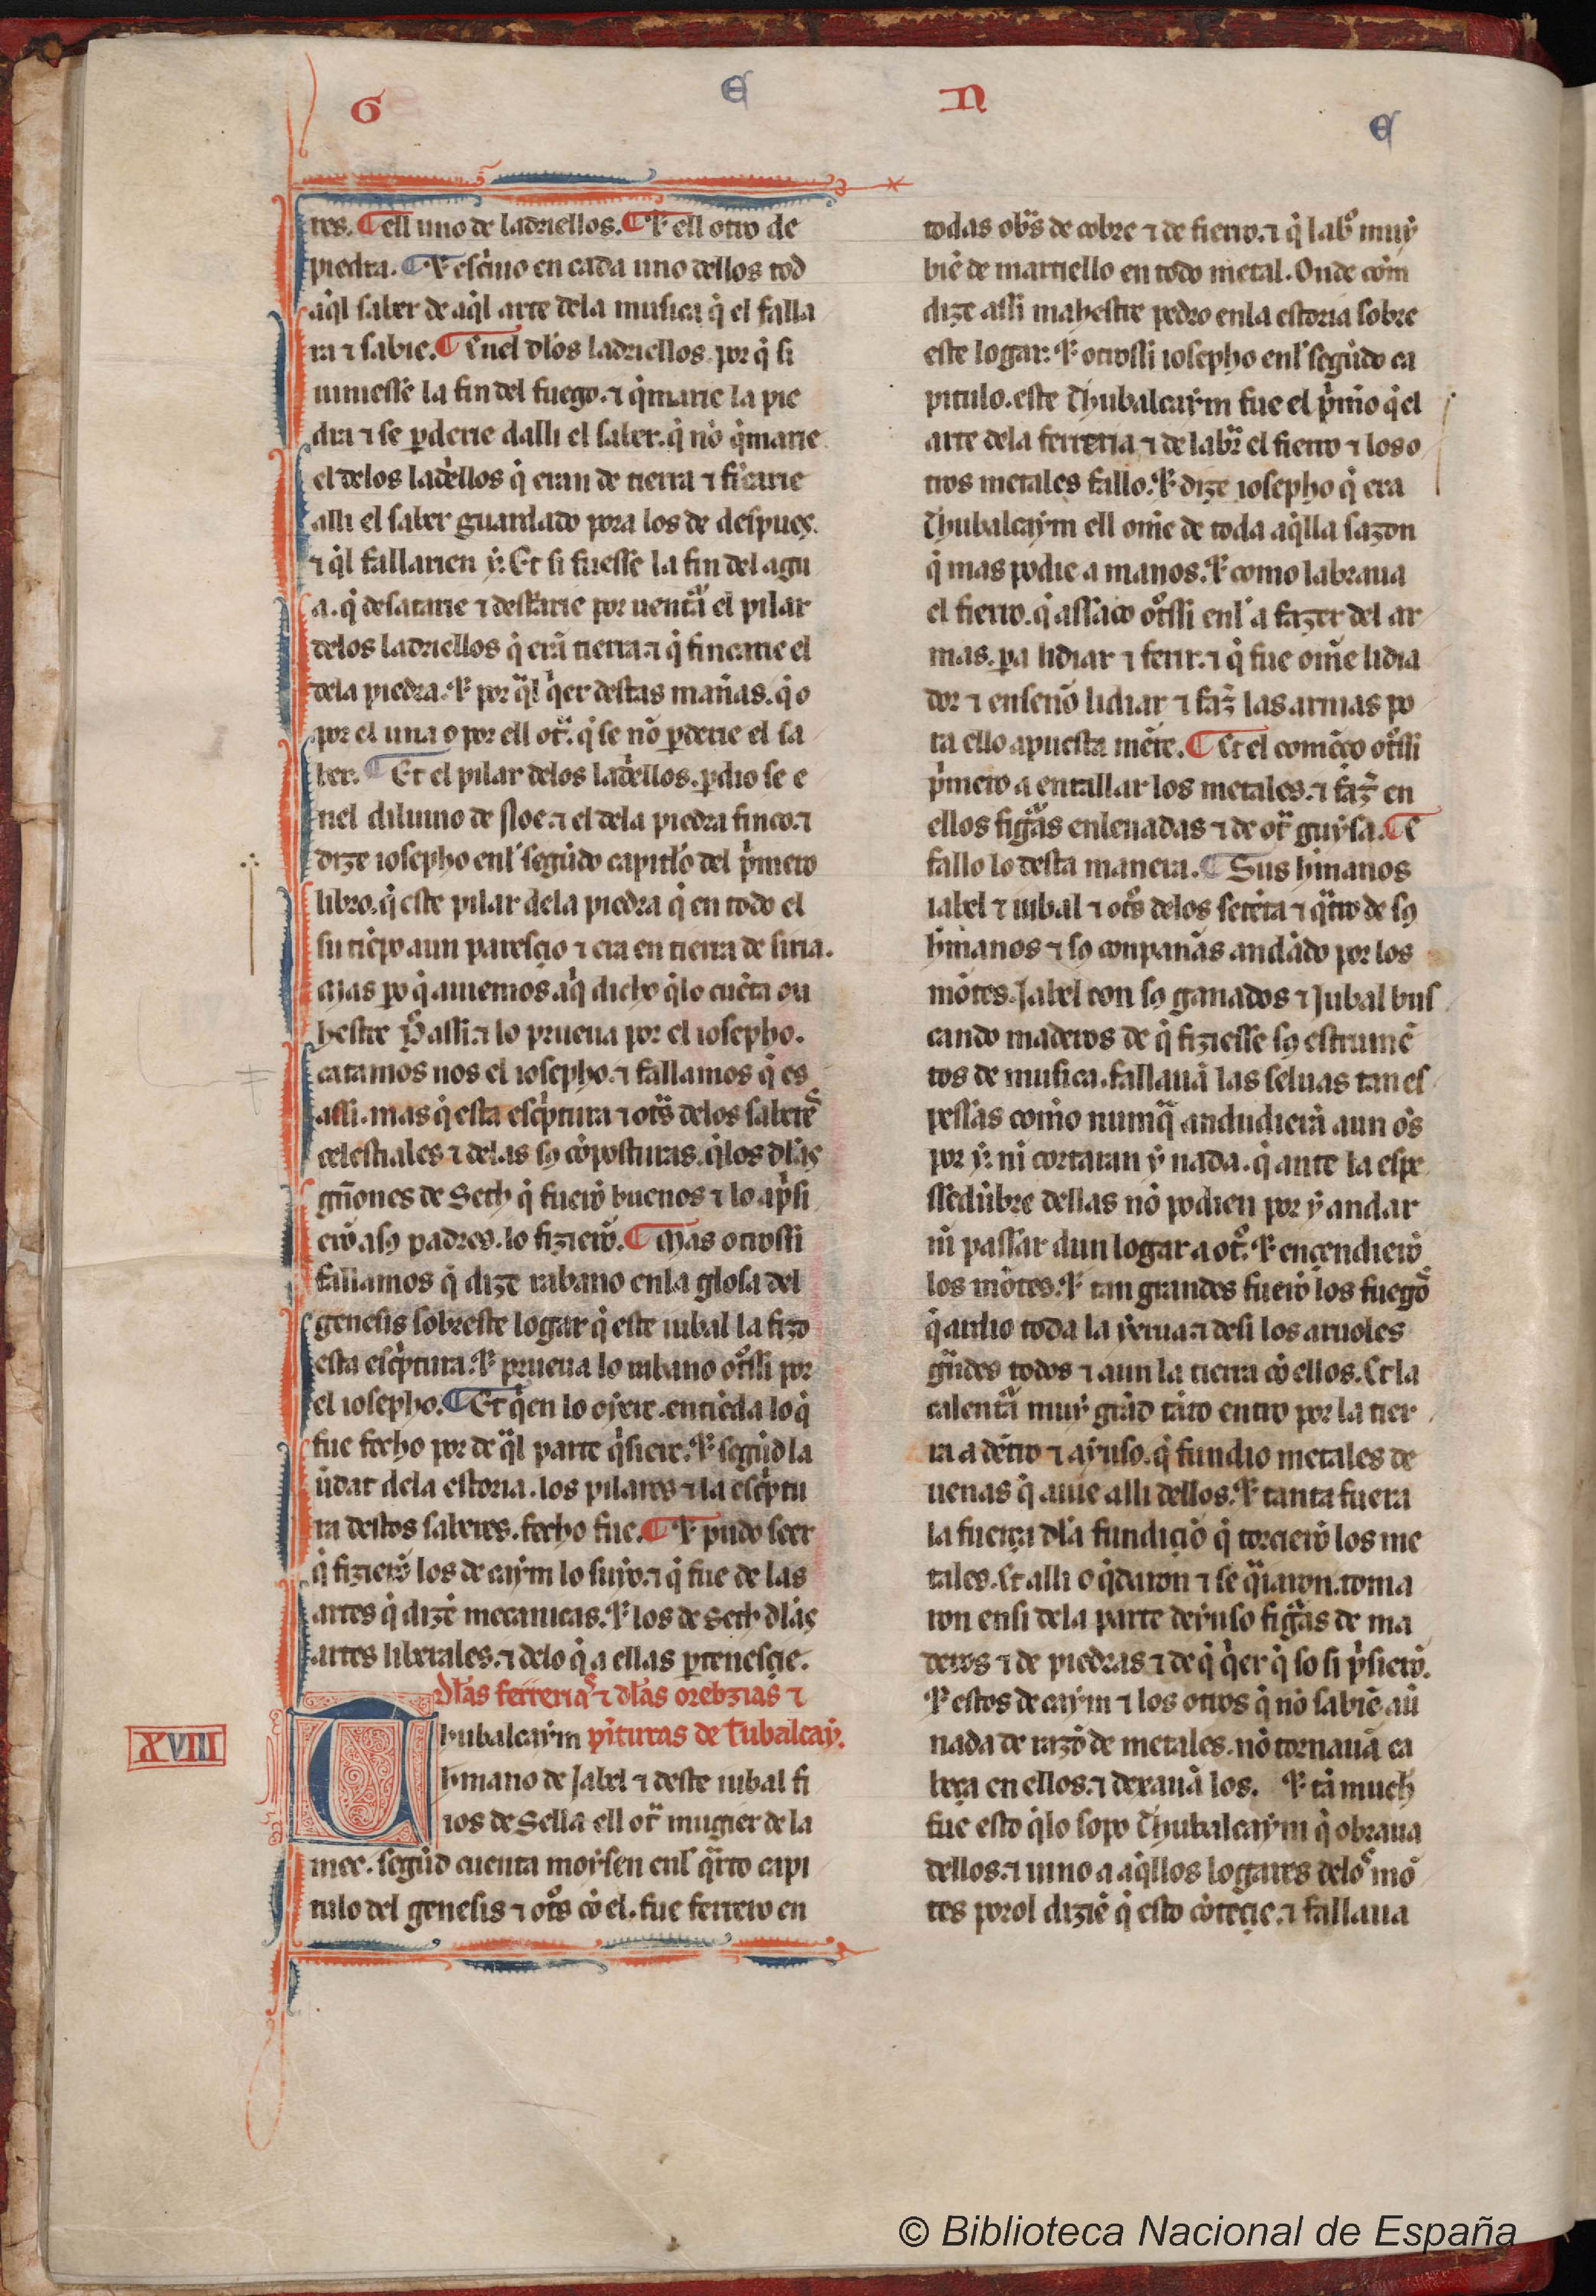 G E N E
res. ¶ ell uno de ladriellos. ¶ Et ell otro de
piedra. ¶ Et escͥuio en cada uno dellos tod
aq̃l saber de aq̃l arte dela musica q̃ el falla
ra ⁊ sabie. ¶ Enel dl̃os ladriellos. por q̃ si
uiniesse la fin del fuego. ⁊ q̃marie la pie
dra ⁊ se ꝑderie dalli el saber. q̃ nõ q̃marie
el delos ladͥellos q̃ eran de tierra ⁊ fͥcarie
alli el saber guardado pora los de despues.
⁊ q̃l fallarien ẏ. Et si fuesse la fin del agu
a. q̃ desatarie ⁊ destͥurie por uentã el pilar
delos ladriellos q̃ erã tierra. ⁊ q̃ fincarie el
dela piedra. Et por q̃l q̃er destas mañas. q̃ o
por el una o por ell otͣ. q̃ se nõ ꝑderie el sa
ber. ¶ Et el pilar delos ladͥellos. ꝑdio se e
nel diluuio de Noe. ⁊ el dela piedra finco. ⁊
dize iosepho enl segũdo capitl̃o del pͥmero
libro. q̃ este pilar dela piedra q̃ en todo el
su tiẽpo aun parescio ⁊ era en tierra de siria.
Mas po q̃ auemos aq̃ dicho q̃lo cuẽta ma
hestre P̃ assi. ⁊ lo prueua por el iosepho.
catamos nos el iosepho. ⁊ fallamos q̃ es
assi. mas q̃ esta escͥptura ⁊ otͣs delos saberẽˢ
celestiales ⁊ delas sꝯ cõposturas. q̃ los dl̃as
gñiones de Seth q̃ fuerõ buenos ⁊ lo apͥsi
erõ a sꝯ padres. lo fizierõ. ¶ Mas otrossi
fallamos q̃ dize rabano enla glosa del
genesis sobreste logar q̃ este iubal la fizo
esta escͥptura. Et prueua lo rabano otͦssi por
el iosepho. ¶ Et q̃en lo oyere. entiẽda lo q̃
fue fecho por de q̃l parte q̃siere. Et segũd la
ũdat dela estoria. los pilares ⁊ la escͥptu
ra destos saberes. fecho fue. ¶ Et pudo seer
q̃ fizierõ los de caẏm lo suyo. ⁊ q̃ fue de las
artes q̃ dizẽ mecanicas. Et los de Seth dl̃as
artes liberales. ⁊ delo q̃ a ellas ꝑtenescie.
Dl̃as ferreriaˢ ⁊ dl̃as orebzias ⁊
XVIII
Thubalcaẏm pĩturas de Tubalcaẏ.
h̃mano de Jabel ⁊ deste iubal fi
ios de Sella ell otͣ mugier de la
mec. segũd cuenta moẏsen enl q̃rto capi
tulo del genesis ⁊ otͦs cõ el. fue ferrero en
todas obͣs de cobre ⁊ de fierro. ⁊ q̃ labͦ muẏ
biẽ de martiello en todo metal. Onde com̃
dize assi mahestre pedro enla estoria sobre
este logar: Et otrossi iosepho enl segũdo ca
pitulo. este Thubalcaẏm fue el pͥm̃o q̃ el
arte dela ferreria ⁊ de labrͣ el fierro ⁊ los o
tros metales fallo. Et dize iosepho q̃ era
Thubalcaẏm ell om̃e de toda aq̃lla sazon
q̃ mas podie a manos. Et como labraua
el fierro. q̃ assaco otͦssi enl a fazer del ar
mas. ꝑa lidiar ⁊ ferir. ⁊ q̃ fue om̃e lidia
dor ⁊ enseño lidiar ⁊ faz̃ las armas po
ra ello apuesta mẽte. ¶ Et el comẽço otͦssi
pͥmero a entallar los metales. ⁊ faz̃ en
ellos figͣas enleuadas ⁊ de otͣ guẏsa. ¶ E
fallo lo desta manera. ¶ Sus h̃manos
iabel ⁊ iubal ⁊ otͦs delos setẽta ⁊ q̃tro de sꝯ
h̃manos ⁊ sꝯ conpañas andãdo por los
mõtes. Jabel con sꝯ ganados ⁊ Jubal bus
cando maderos de q̃ fiziesse sꝯ estrumẽ
tos de musica. fallauã las seluas tan es
pessas com̃o numq̃ andudierã aun om̃s
por ẏ. ni cortaran ẏ nada. q̃ ante la espe
ssedũbre dellas nõ podien por ẏ andar
nĩ passar dun logar a otͦ. Et encendierõ
los mõtes. Et tan grandes fuerõ los fuegõˢ
q̃ ardio toda la ẏerua. ⁊ desi los aruoles
gͣndes todos ⁊ aun la tierra cõ ellos. Et la
calentͣa muẏ grãd tãto entro por la tier
ra a dẽtro ⁊ aẏuso. q̃ fundio metales de
uenas q̃ auie alli dellos. Et tanta fuera
la fuerça dl̃a fundiciõ q̃ torcierõ los me
tales. Et alli o q̃daron ⁊ se q̃iaron. toma
ron ensi dela parte deẏuso figͣas de ma
deros ⁊ de piedras ⁊ de q̃ q̃er q̃ so si pͥsierõ.
Et estos de caẏm ⁊ los otros q̃ nõ sabiẽ aũ
nada de razõ de metales. nõ tornauã ca
beça en ellos. ⁊ dexauã los. Et tã much
fue esto q̃lo sopo Thubalcaẏm q̃ obraua
dellos. ⁊ uino a aq̃llos logares deloˢ mõ
tes porol diziẽ q̃ esto cõtecie. ⁊ fallaua
© Biblioteca Nacional de España